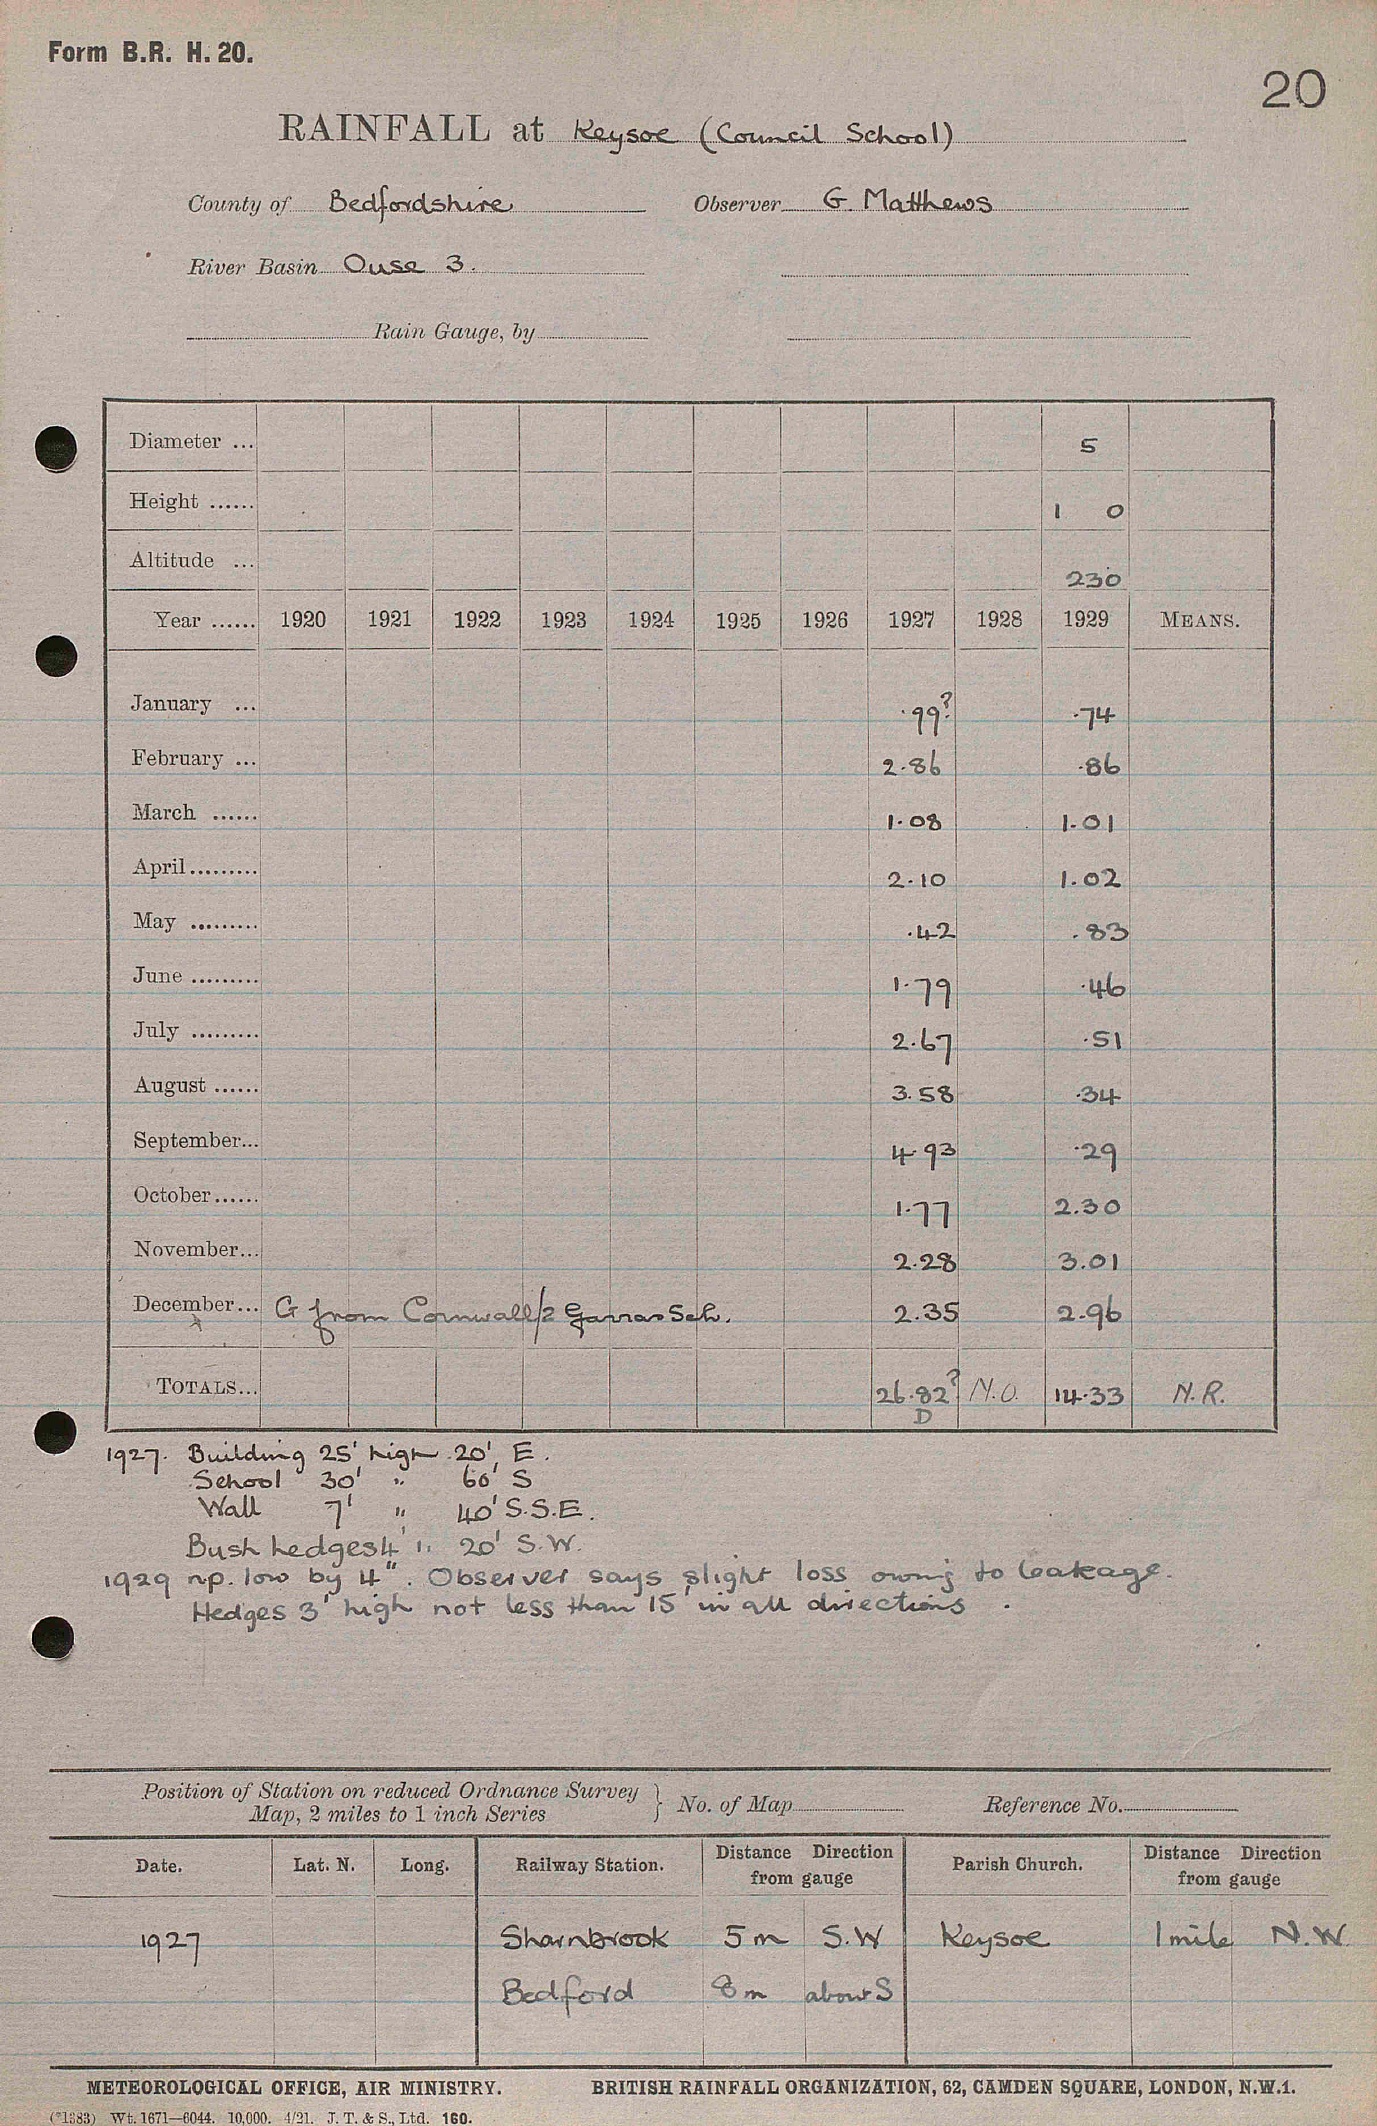 Form B.R. H. 20.
20
RAINFALL at Keysoe (Council School)
County of Bedfordshire Observer G. Matthews
River Basin Ouse 3.
Rain Gauge, by
Diameter ... 5
Height ...... 1 0
Altitude ... 230
Year ...... 1920 1921 1922 1923 1924 1925 1926 1927 1928 1929 MEANS.
January ... .99? .74
February ... 2.86 .86
March ...... 1.08 1.01
April......... 2.10 1.02
May ......... .42 .83
June ......... 1.79 .46
July ......... 2.67 .51
August ...... 3.58 .34
September... 4.93 .29
October...... 1.77 2.30
November... 2.28 3.01
December... G from Cornwall/2 Garras Sch. 2.35 2.96
TOTALS... 26.82? N.O. 14.33 N.R.
D
1927. Building 25' high 20' E.
School 30' " 60' S
Wall 7' " 40' S.S.E.
Bush hedges 4' " 20' S.W.
1929 np. low by 4". Observer says slight loss owing to leakage.
Hedges 3' high not less than 15' in all directions.
Position of Station on reduced Ordnance Survey
Map, 2 miles to 1 inch Series } No. of Map Reference No.
Date. Lat. N. Long. Railway Station. Distance Direction from gauge Parish Church. Distance Direction from gauge
1927 Sharnbrook 5 m S.W Keysoe 1 mile N.W.
Bedford 8 m about S
METEOROLOGICAL OFFICE, AIR MINISTRY. BRITISH RAINFALL ORGANIZATION, 62, CAMDEN SQUARE, LONDON, N.W.1.
(*1383) Wt. 1671—6044. 10,000. 4/21. J. T. & S., Ltd. 160.